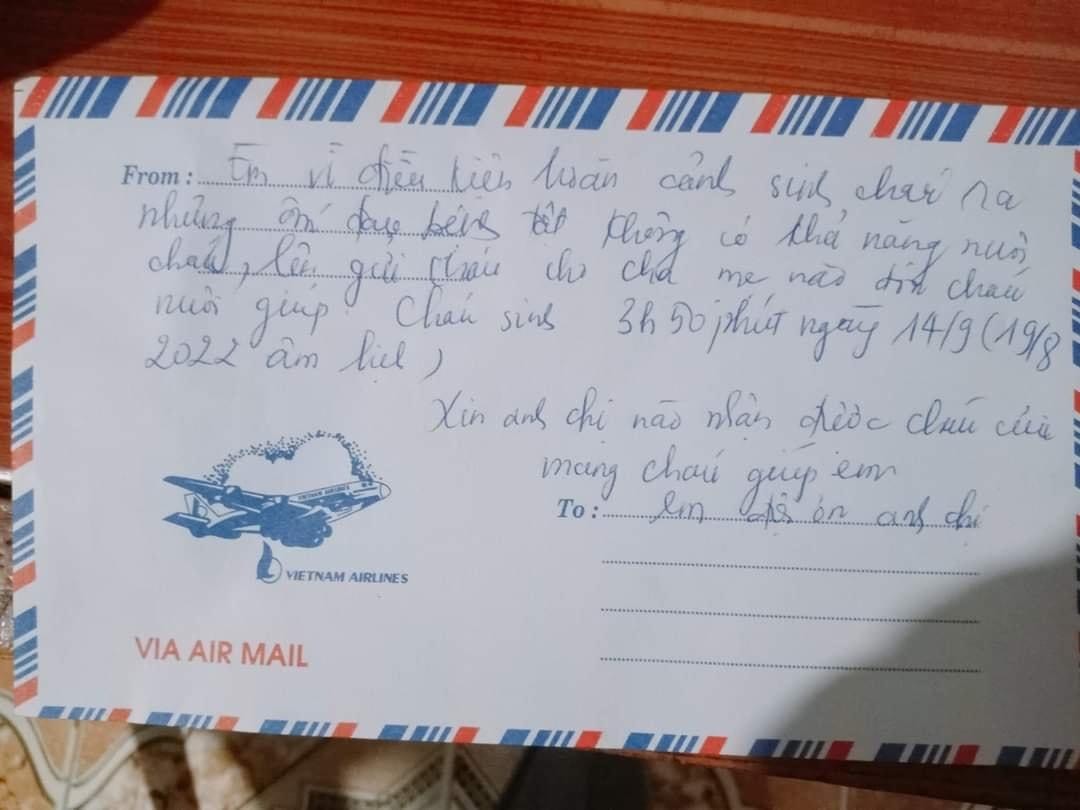 From : Em vì điều kiện hoàn cảnh sinh cháu ra
nhưng ốm đau bệnh tật không có khả năng nuôi
cháu, lên gửi cháu cho cha mẹ nào đón cháu
nuôi giúp. Cháu sinh 3h50 phút ngày 14/9 (19/8
2022 âm lịch)
Xin anh chị nào nhận được cháu cưu
mang cháu giúp em
To : em ơn anh chị
VIETNAM AIRLINES
VIETNAM AIRLINES
VIA AIR MAIL